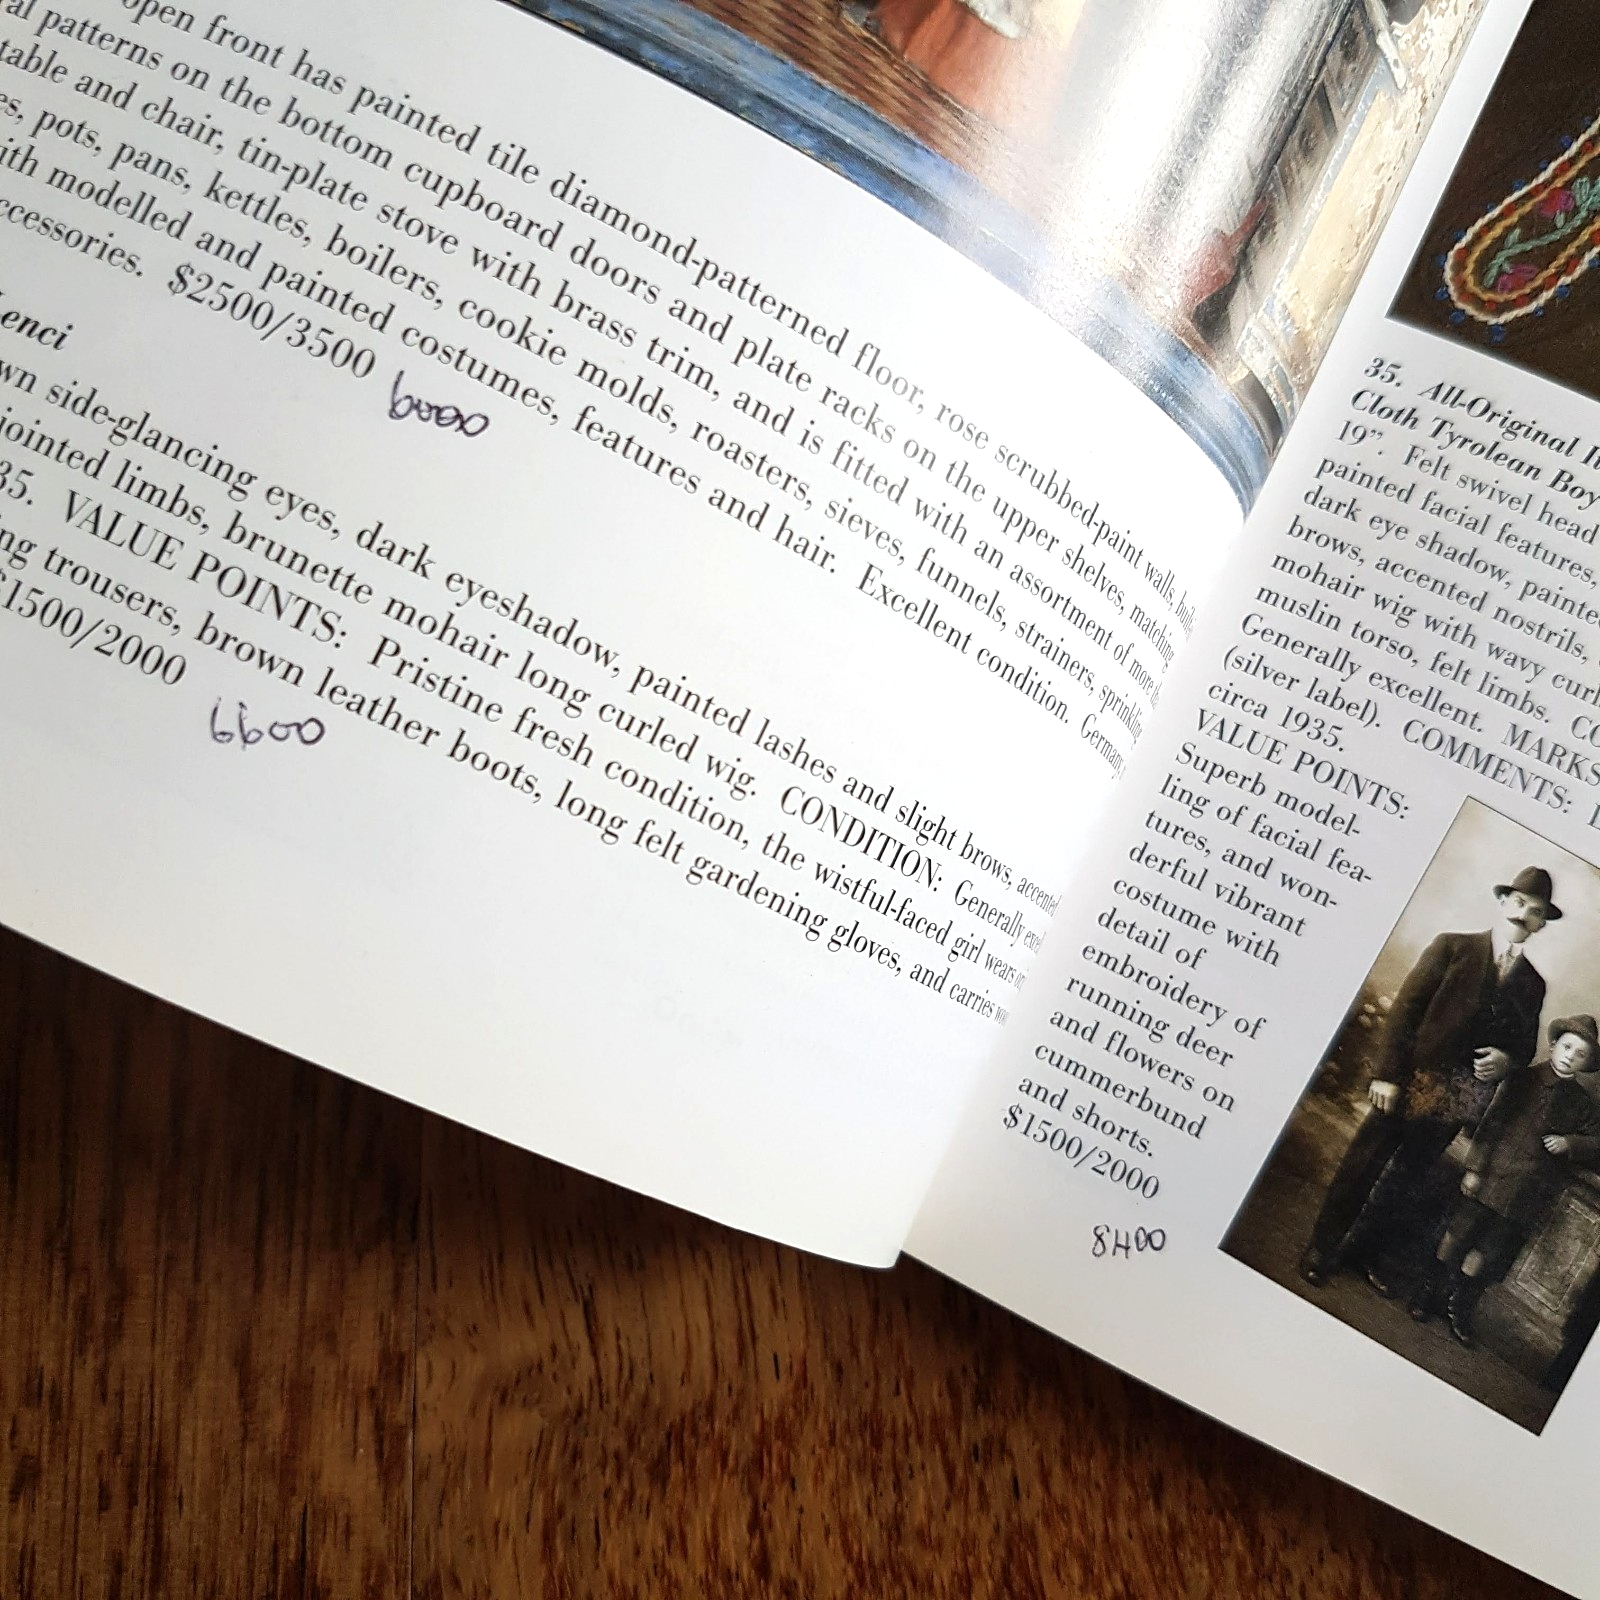 open front has painted tile diamond-patterned floor, rose scrubbed-paint walls,
patterns on the bottom cupboard doors and plate racks on the upper shelves, matching
table and chair, tin-plate stove with brass trim, and is fitted with an assortment of more
pots, pans, kettles, boilers, cookie molds, roasters, sieves, funnels, strainers, sprinkling
with modelled and painted costumes, features and hair. Excellent condition. Germany,
accessories. $2500/3500
6000
Lenci
side-glancing eyes, dark eyeshadow, painted lashes and slight brows, accented
jointed limbs, brunette mohair long curled wig. CONDITION: Generally
35. VALUE POINTS: Pristine fresh condition, the wistful-faced girl wears
trousers, brown leather boots, long felt gardening gloves, and carries
$1500/2000
6600
35. All-Original
Cloth Tyrolean Boy
19". Felt swivel head
painted facial features,
dark eye shadow, painted
brows, accented nostrils,
mohair wig with wavy
muslin torso, felt limbs.
Generally excellent. MARKS
(silver label). COMMENTS:
circa 1935.
VALUE POINTS:
Superb model-
ling of facial fea-
tures, and won-
derful vibrant
costume with
detail of
embroidery of
running deer
and flowers on
cummerbund
and shorts.
$1500/2000
8400